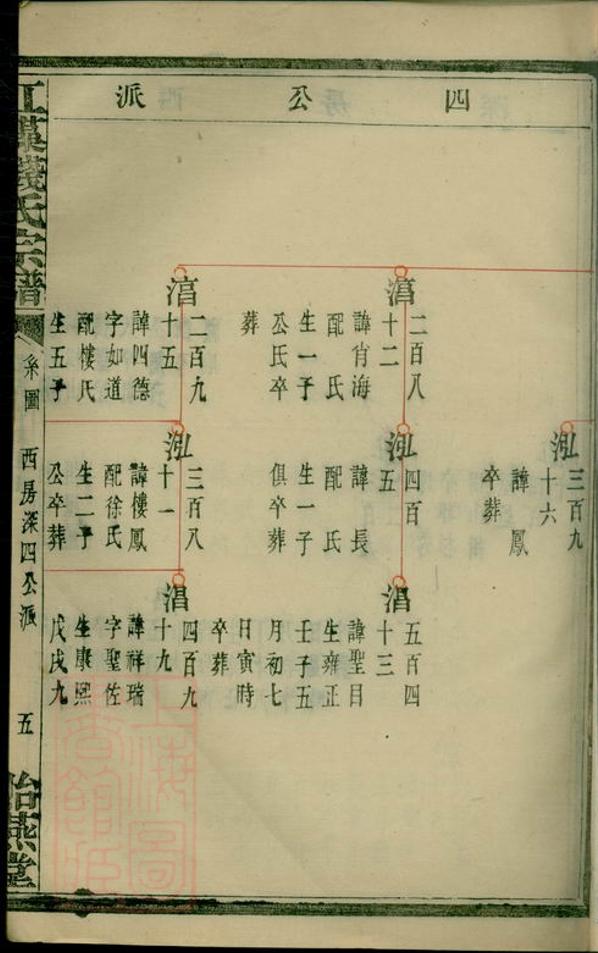 四公派
湻
二百八
十二
諱肖海
配 氏
生一子
公氏卒
葬
湻
二百九
十五
諱四德
字如道
配樓氏
生五子
泓
三百九
十六
諱 鳳
卒葬
泓
四百
五
諱 長
配 氏
生一子
俱卒葬
泓
三百八
十一
諱樓鳳
配徐氏
生二子
公卒葬
淐
五百四
十三
諱聖目
生雍正
壬子五
月初七
日寅時
卒葬
淐
四百九
十九
諱祥瑞
字聖佐
生康熙
戊戌九
錢氏宗譜
系圖
西房深四公派
五
怡燕堂